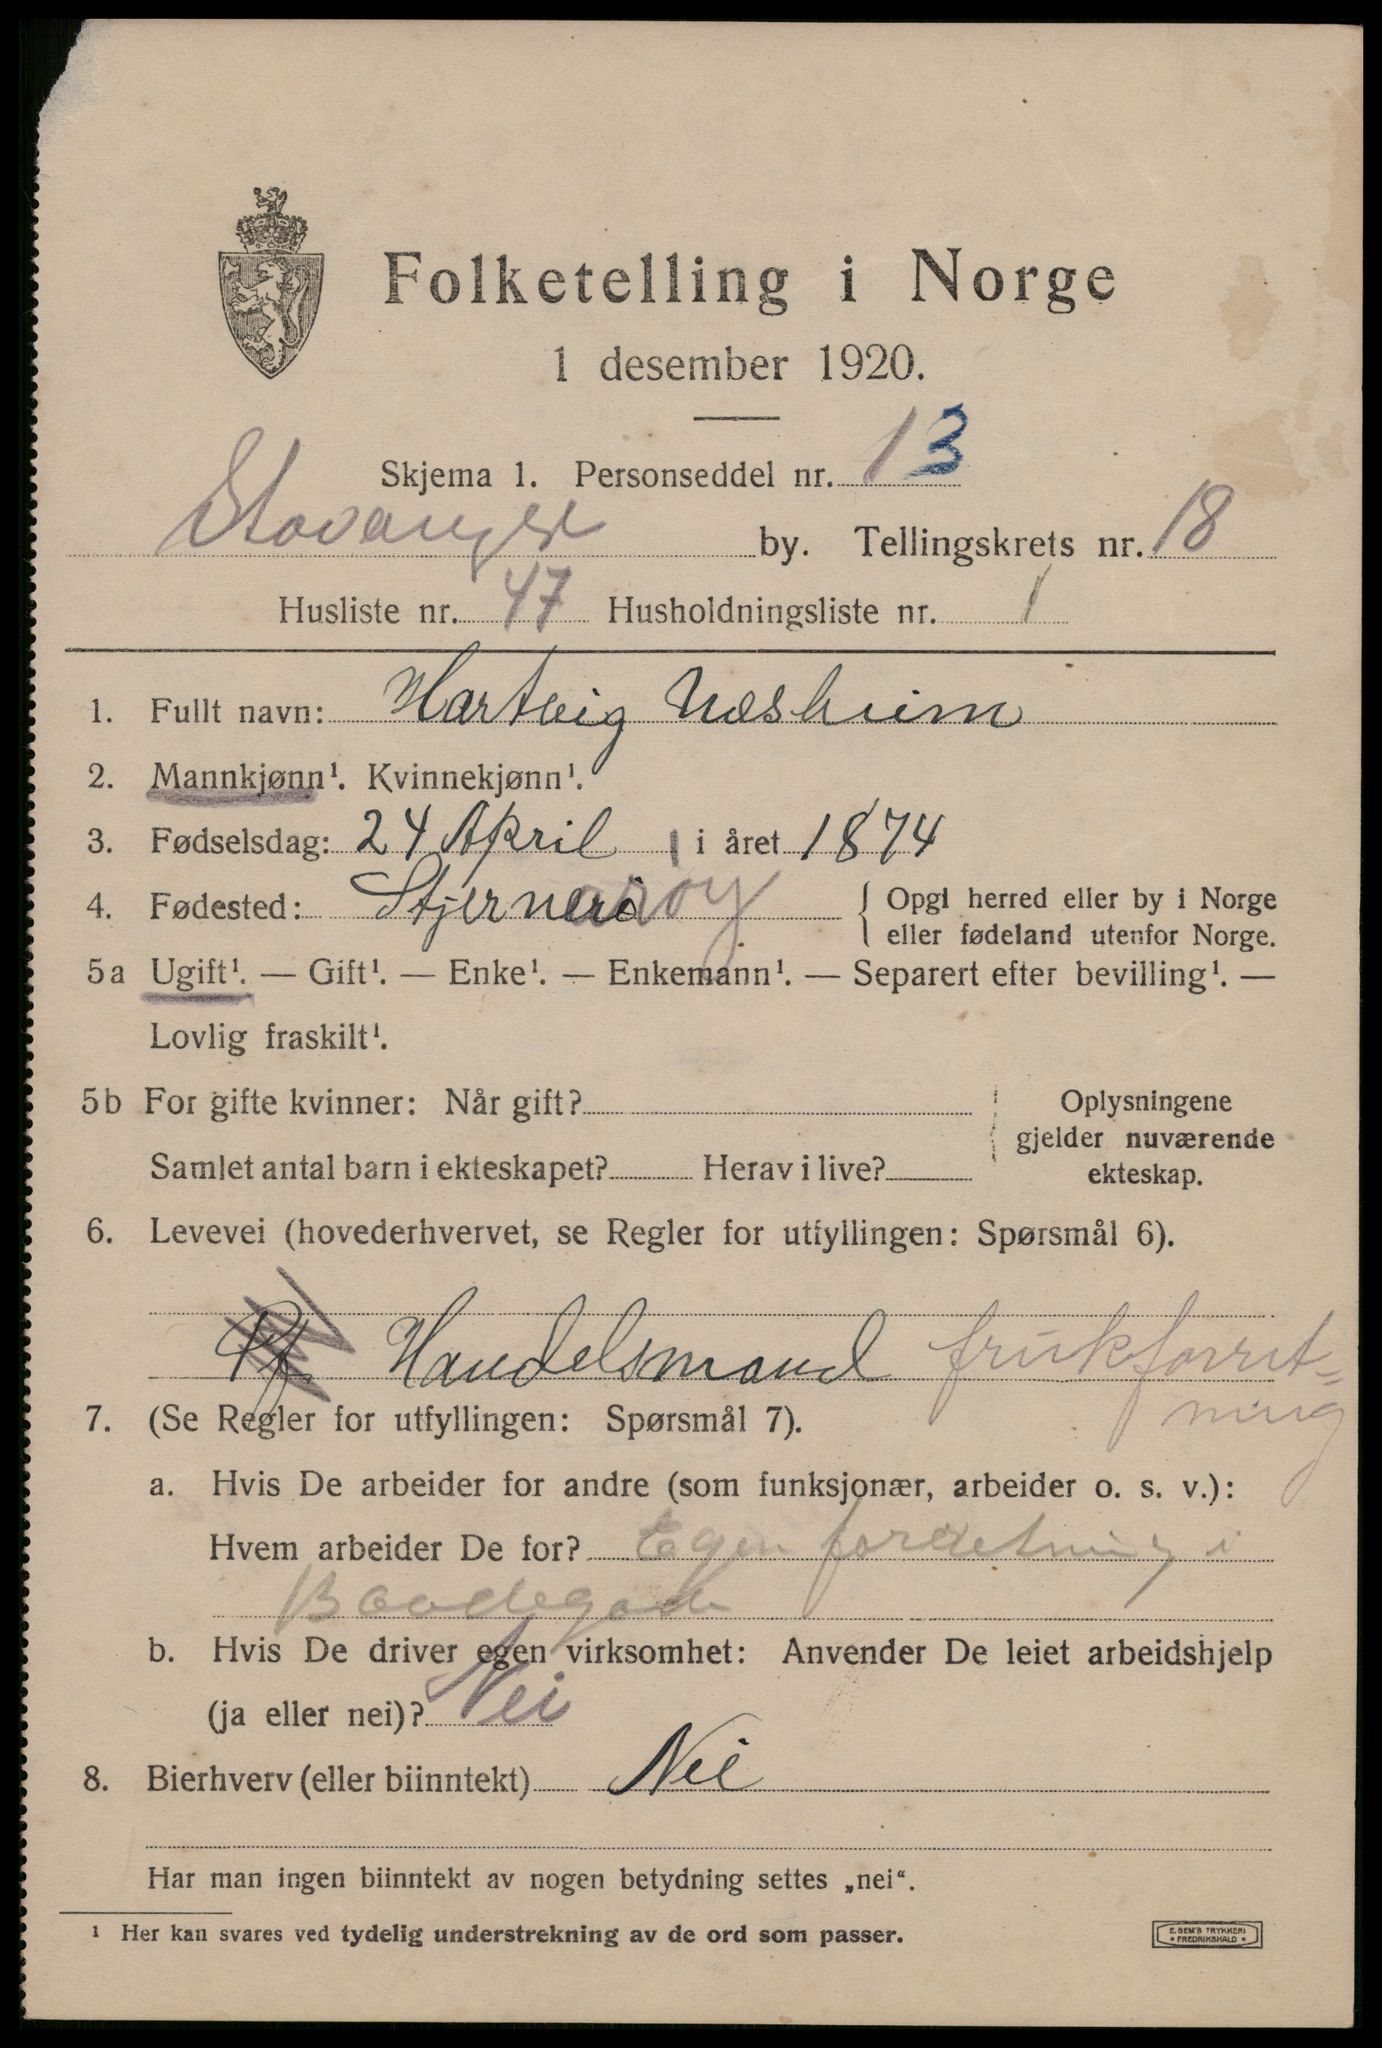 Folketelling i Norge
1 desember 1920.
Skjema 1. Personseddel nr. 13
Stavanger by. Tellingskrets nr. 18
Husliste nr. 47 Husholdningsliste nr. 1
1. Fullt navn: Hartvig Næsheim
2. Mannkjønn¹. Kvinnekjønn¹.
3. Fødselsdag: 24 April i året 1874
4. Fødested: Stjernerøarøy { Opgi herred eller by i Norge
eller fødeland utenfor Norge.
5a Ugift¹. — Gift¹. — Enke¹. — Enkemann¹. — Separert efter bevilling¹. —
Lovlig fraskilt¹.
5b For gifte kvinner: Når gift? Oplysningene
gjelder nuværende
Samlet antal barn i ekteskapet? Herav i live? ekteskap.
6. Levevei (hovederhvervet, se Regler for utfyllingen: Spørsmål 6).
Handelsmand frukforret-
ning
7. (Se Regler for utfyllingen: Spørsmål 7).
a. Hvis De arbeider for andre (som funksjonær, arbeider o. s. v.):
Hvem arbeider De for? Egen forretning i
b. Hvis De driver egen virksomhet: Anvender De leiet arbeidshjelp
(ja eller nei)? Nei
8. Bierhverv (eller biinntekt) Nei
Har man ingen biinntekt av nogen betydning settes „nei“.
¹ Her kan svares ved tydelig understrekning av de ord som passer.
E. SEM'S TRYKKERI
* FREDRIKSHALD *